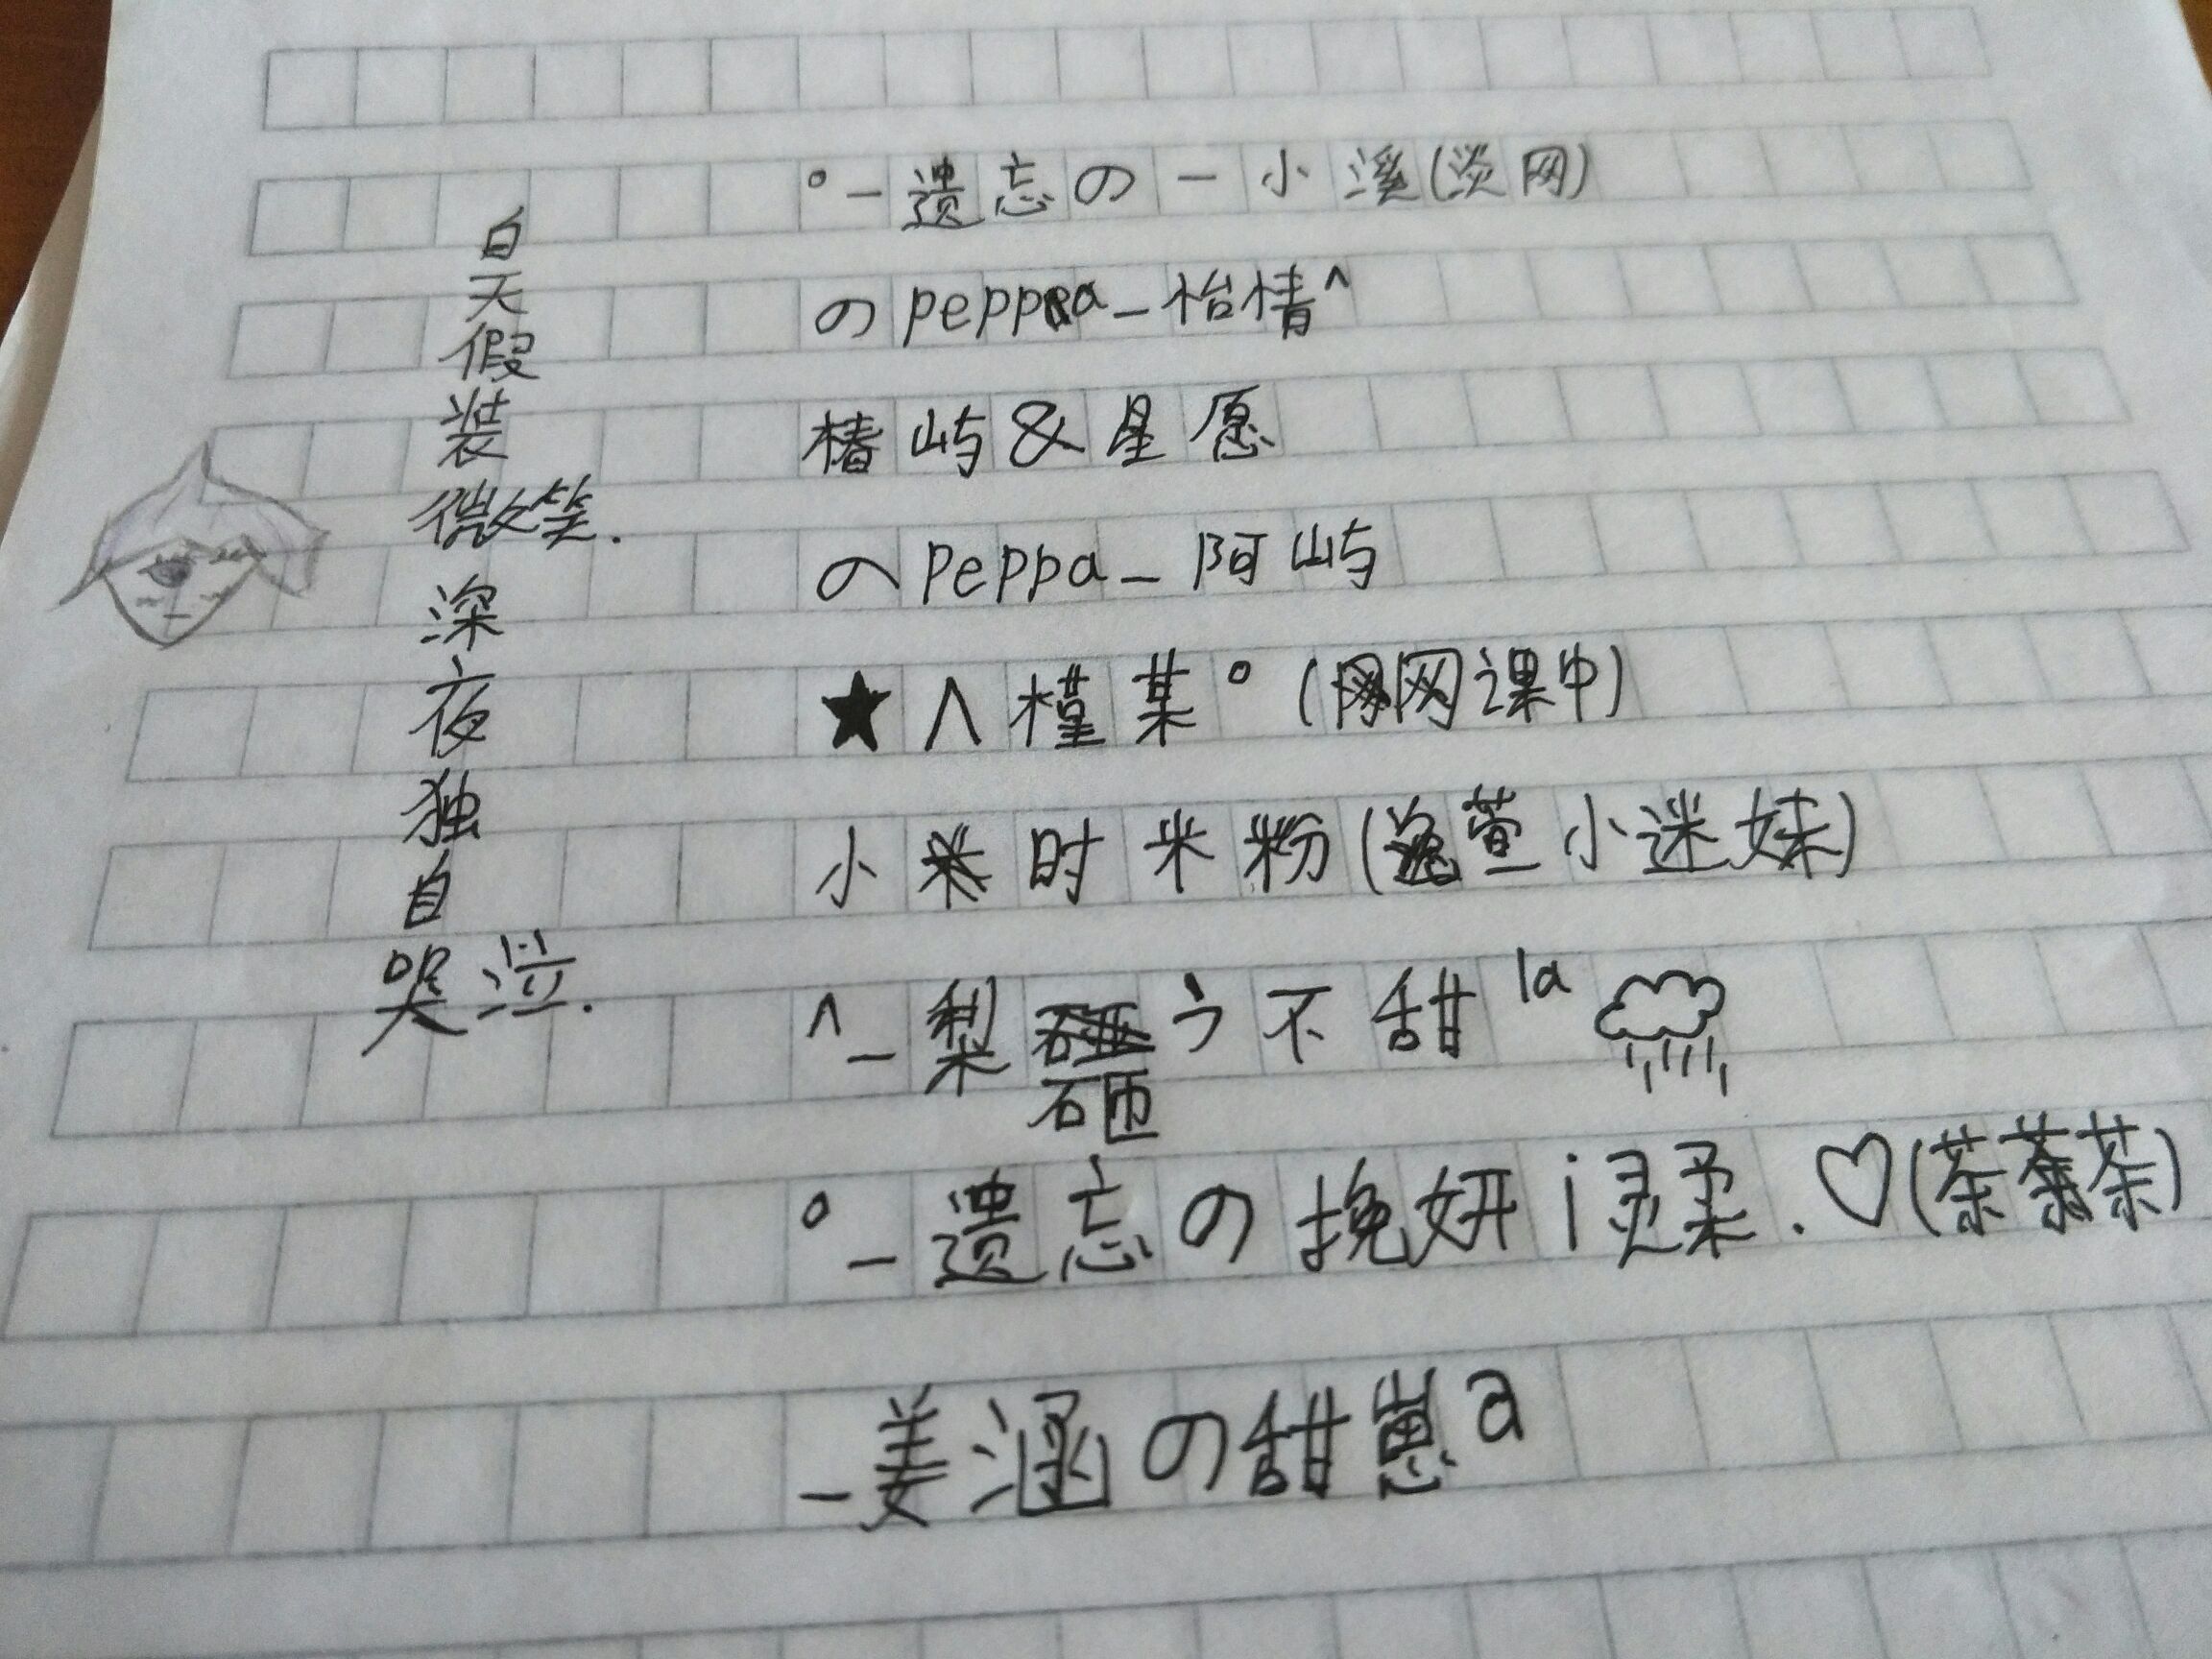 白天假装微笑.
深夜独自哭泣.
°-遗忘の-小溪(淡网)
の peppa_枱棈^
椿屿&星愿
の peppa_阿屿
★∧槿某°(网课中)
小 时米粉(萱小迷妹)
^_梨砸氵不甜la
°_遗忘の挽妍i灵柔.♡(茶茶茶)
_姜涵の甜崽a